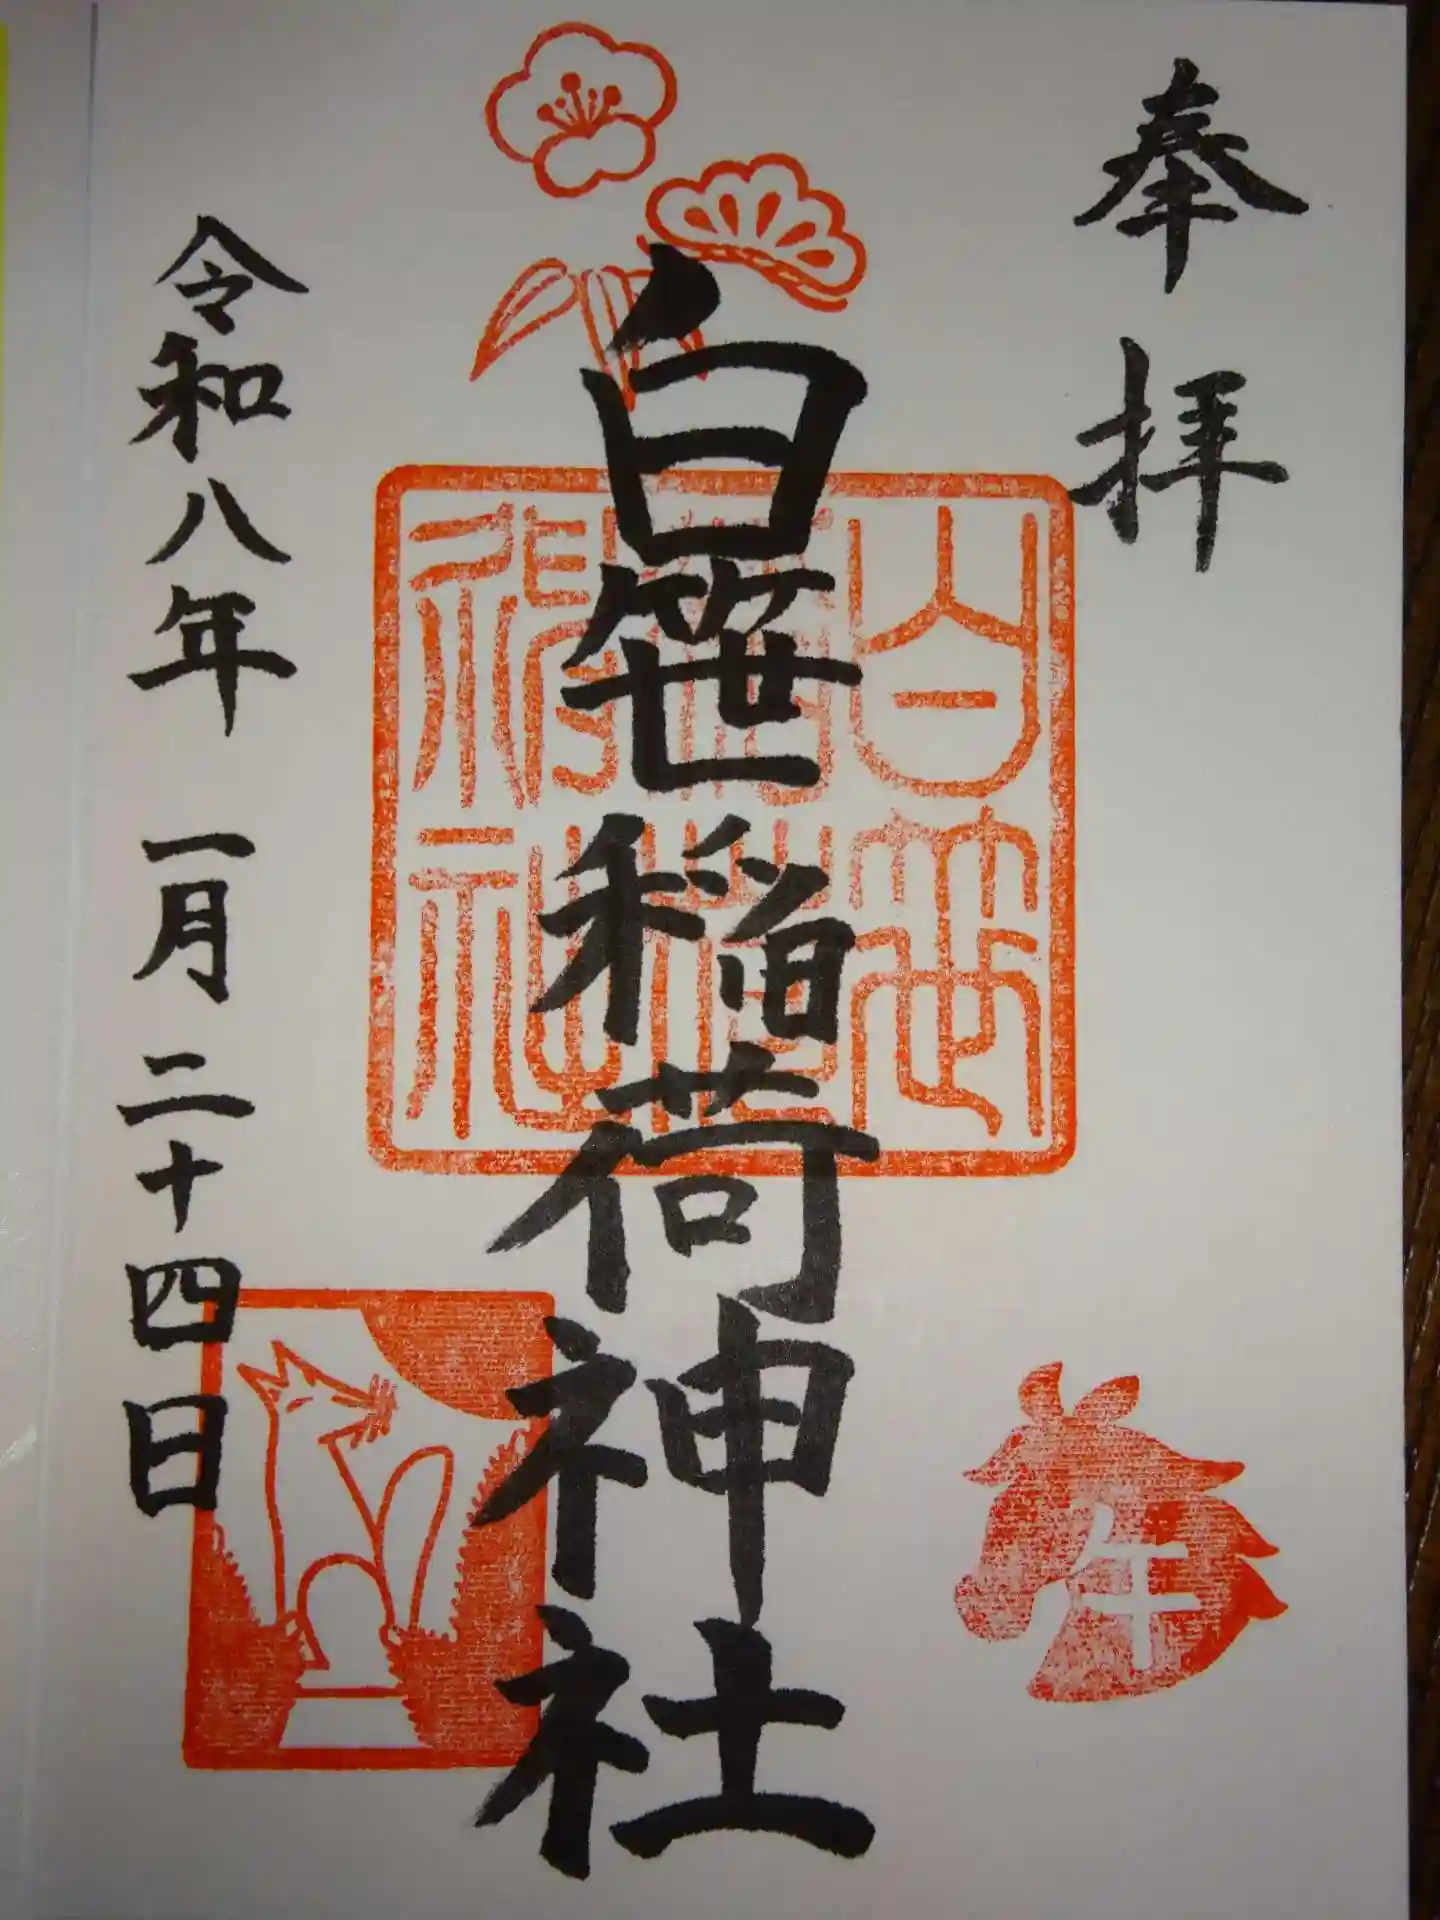 奉拝
白笹稲荷神社
白笹
稲荷
神社
午
令和八年 一月 二十四日